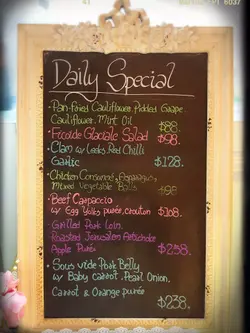 Daily Special
• Pan-Fried Cauliflower, Pickled Grape
Cauliflower, Mint Oil
$88.
• Ficoide Glaciale Salad $98.
• Clam w/ Leeks, Red Chilli
Garlic $128.
• Chicken Consommé, Asparagus,
Mixed Vegetable Balls $98
• Beef Carpaccio
w/ Egg Yolks purée, crouton $108.
• Grilled Pork Loin,
Roasted Jerusalem Artichoke
Apple Purée $238.
• Sous vide Pork Belly
w/ Baby carrot, Pearl Onion,
Carrot & Orange purée
$238.